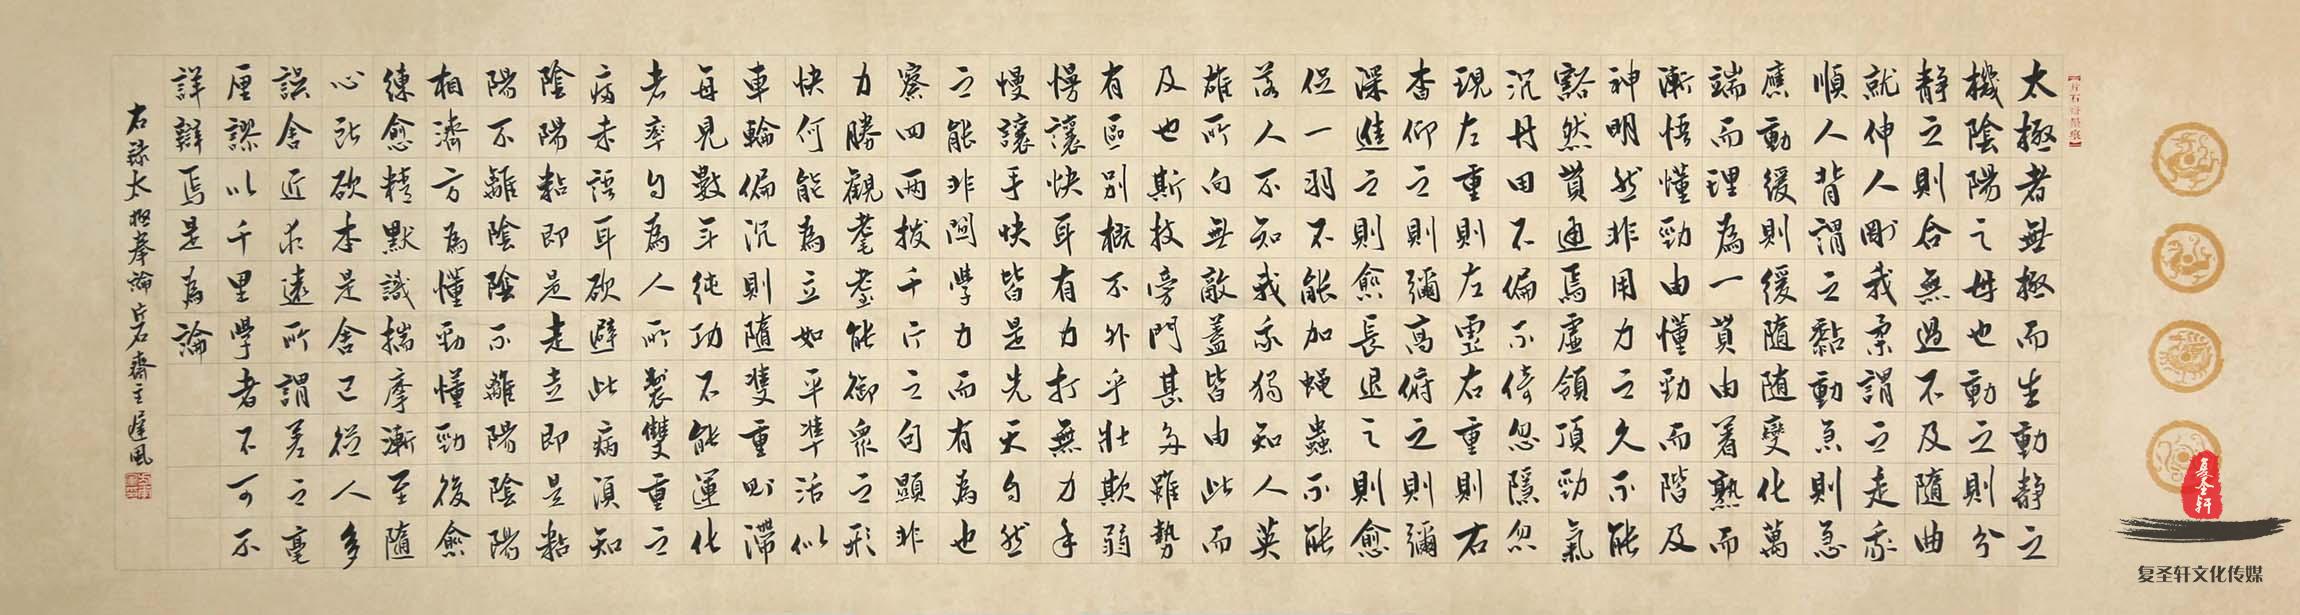 太極者無極而生動靜之
機陰陽之母也動之則分
靜之則合無過不及隨曲
就伸人剛我柔謂之走我
順人背謂之黏動急則急
應動緩則緩隨隨變化萬
端而理為一貫由着熟而
漸悟懂勁由懂勁而階及
神明然非用力之久不能
豁然貫通焉虛領頂勁氣
沉丹田不偏不倚忽隱忽
現左重則左虛右重則右
杳仰之則彌高俯之則彌
深進之則愈長退之則愈
促一羽不能加蝇蟲不能
落人不知我我獨知人英
雄所向無敵蓋皆由此而
及也斯技旁門甚多雖勢
有區別概不外乎壯欺弱
慢讓快耳有力打無力手
慢讓手快皆是先天自然
之能非關學力而有為也
察四兩撥千斤之句顯非
力勝觀耄耋能御衆之形
快何能為立如平準活似
車輪偏沉則隨雙重則滯
每見數年純功不能運化
者率自為人所製雙重之
病未悟耳欲避此病須知
陰陽粘即是走走即是粘
陽不離陰陰不離陽陰陽
相濟方為懂勁懂勁後愈
練愈精默識揣摩漸至隨
心所欲本是舍己從人多
誤舍近求遠所謂差之毫
厘謬以千里學者不可不
詳辨焉是為論
右錄太極拳論片石齋主遲風
复圣轩
复圣轩文化传媒